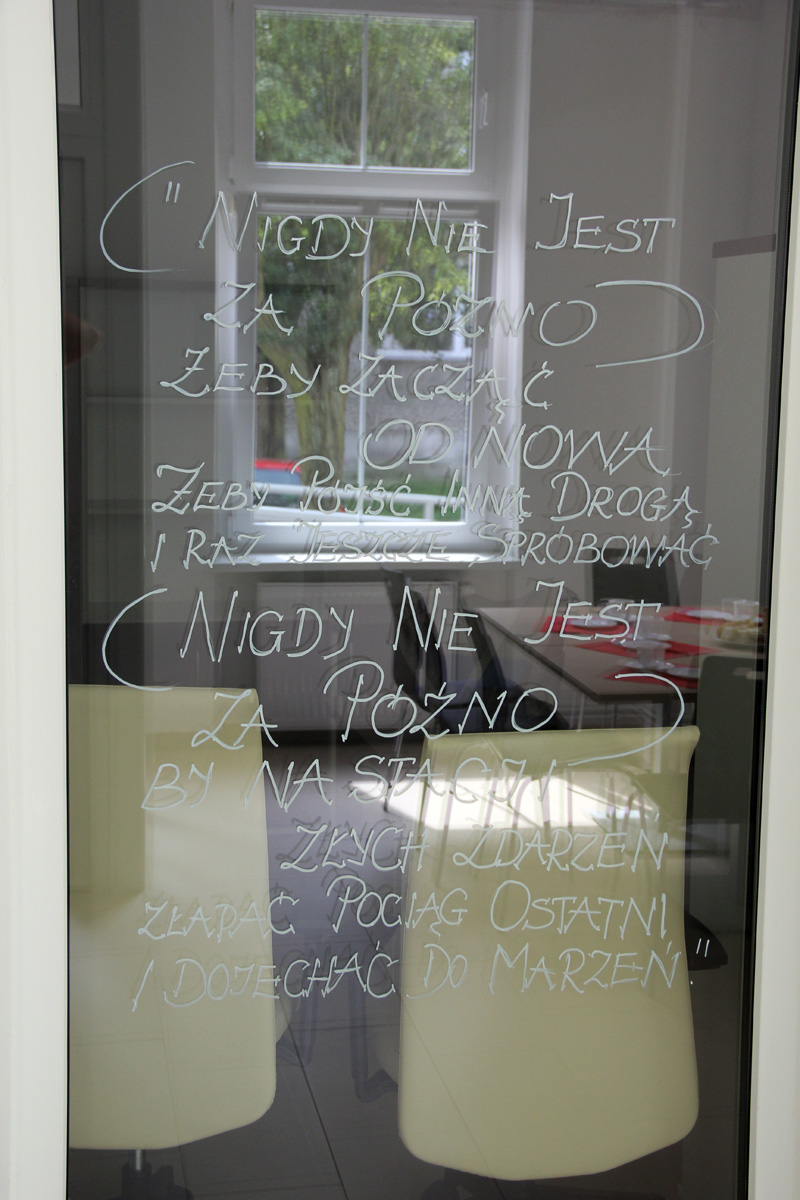 " NIGDY NIE JEST
ZA PÓŹNO
ŻEBY ZACZĄĆ
OD NOWA
ŻEBY PÓJŚĆ INNĄ DROGĄ
I RAZ JESZCZE SPRÓBOWAĆ
NIGDY NIE JEST
ZA PÓŹNO
BY NA STACJI
ZŁYCH ZDARZEŃ
ZŁAPAĆ POCIĄG OSTATNI
I DOJECHAĆ DO MARZEŃ."